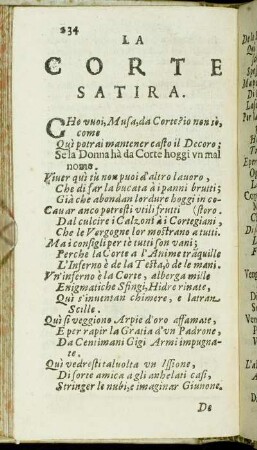 234
LA
CORTE
SATIRA.
CHo vuoi, Musa, da Corte? io non sè,
come
Quì potrai mantener casto il Decoro;
Se la Donna hà da Corte hoggi vn mal
nomo.
Viuer quì tù non puoi d'altro lauoro,
Che di far la bucata à i panni brutti;
Già che abondan lordure hoggi in co-
Cauar anco potresti vtili frutti (storo.
Dal culcire i Calzoni à i Cortegiani,
Che le Vergogne lor mostrano a tutti.
Ma i consigli per tè tutti son vani;
Perche la Corte a l'Anime träquille
L'Inferno è de la Testa, ò de le mani.
Vn'inferno è la Corte, alberga mille
Enigmatiche Sfingi, Hidre rinate,
Quì s'inuentan chimere, e latran
Scille.
Quì si veggiono Arpie d'oro affamate,
E per rapir la Gratia d'vn Padrone,
Da Centimani Gigi Armi impugna-
te.
Quì vedresti taluolta vn Issione,
Di sorte amica a gli anhelati casi,
Stringer le nubi, e imaginar Giunone.
De